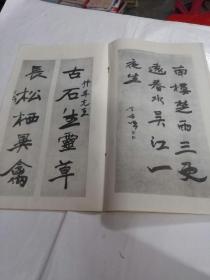 南樓楚雨三更
遠春水吳江一
夜生
竹年尤兄
古石生靈草
長松栖異禽